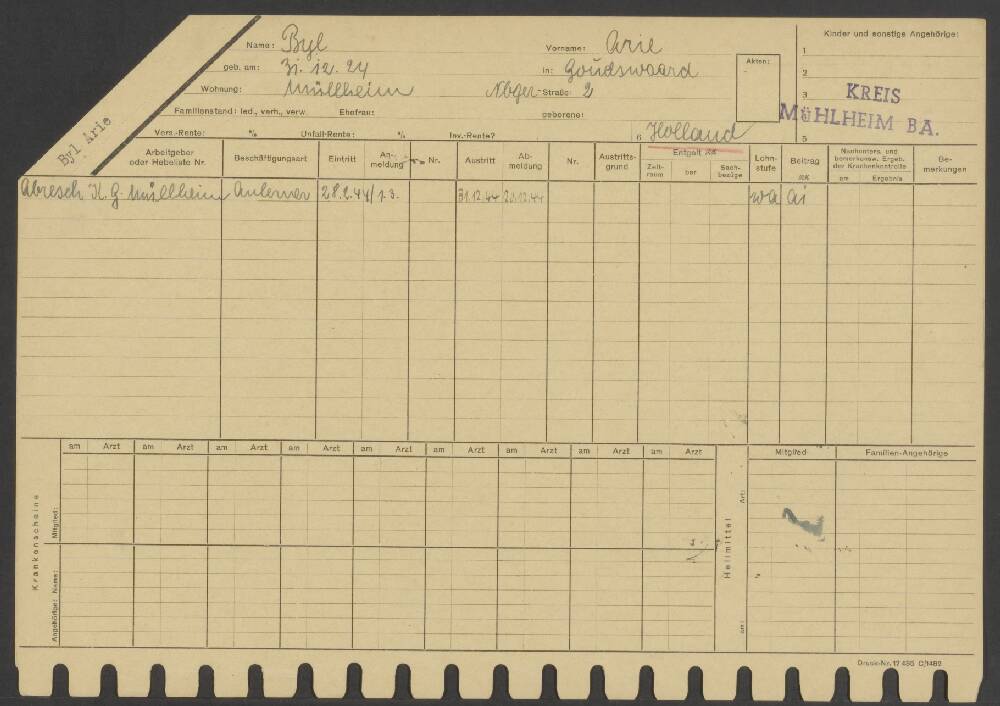 Byl Arie
Name: Byl Vorname: Arie
geb. am: 31.12.24 in: Goudswaard
Wohnung: Müllheim Straße 2
Familienstand: led., verh., verw. Ehefrau: geborene:
Vers.-Rente: % Unfall-Rente: % Inv.-Rente? 6 Holland
Akten:
Kinder und sonstige Angehörige:
1
2
3
5
KREIS
MÜHLHEIM BA.
Arbeitgeber oder Hebeliste Nr. Beschäftigungsart Eintritt An-meldung Nr. Austritt Ab-meldung Nr. Austritts-grund Entgelt RM Zeit-raum bar Sach-bezüge Lohn-stufe Beitrag RM Nachunters. und bemerkensw. Ergeb. der Krankenkontrolle am Ergebnis Be-merkungen
Abresch K.G. Müllheim Anlerner 28.2.44 1.3. 31.12.44 20.12.44 wa ai
am Arzt am Arzt am Arzt am Arzt am Arzt am Arzt am Arzt am Arzt am Arzt
Mitglied Familien-Angehörige
Krankenscheine
Mitglied:
Angehörige: Name:
Heilmittel
Art:
am:
Druck-Nr. 17 485 C/1482